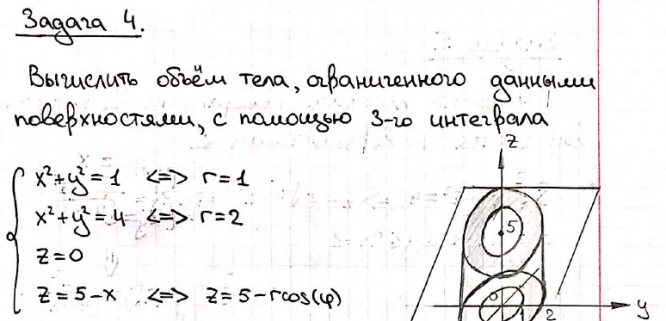 Задача 4.
Вычислить объём тела, ограниченного данными
поверхностями, с помощью 3-го интеграла
x²+y²=1 <=> r=1
x²+y²=4 <=> r=2
z=0
z=5-x <=> z=5-rcos(φ)
z
5
y
2
1